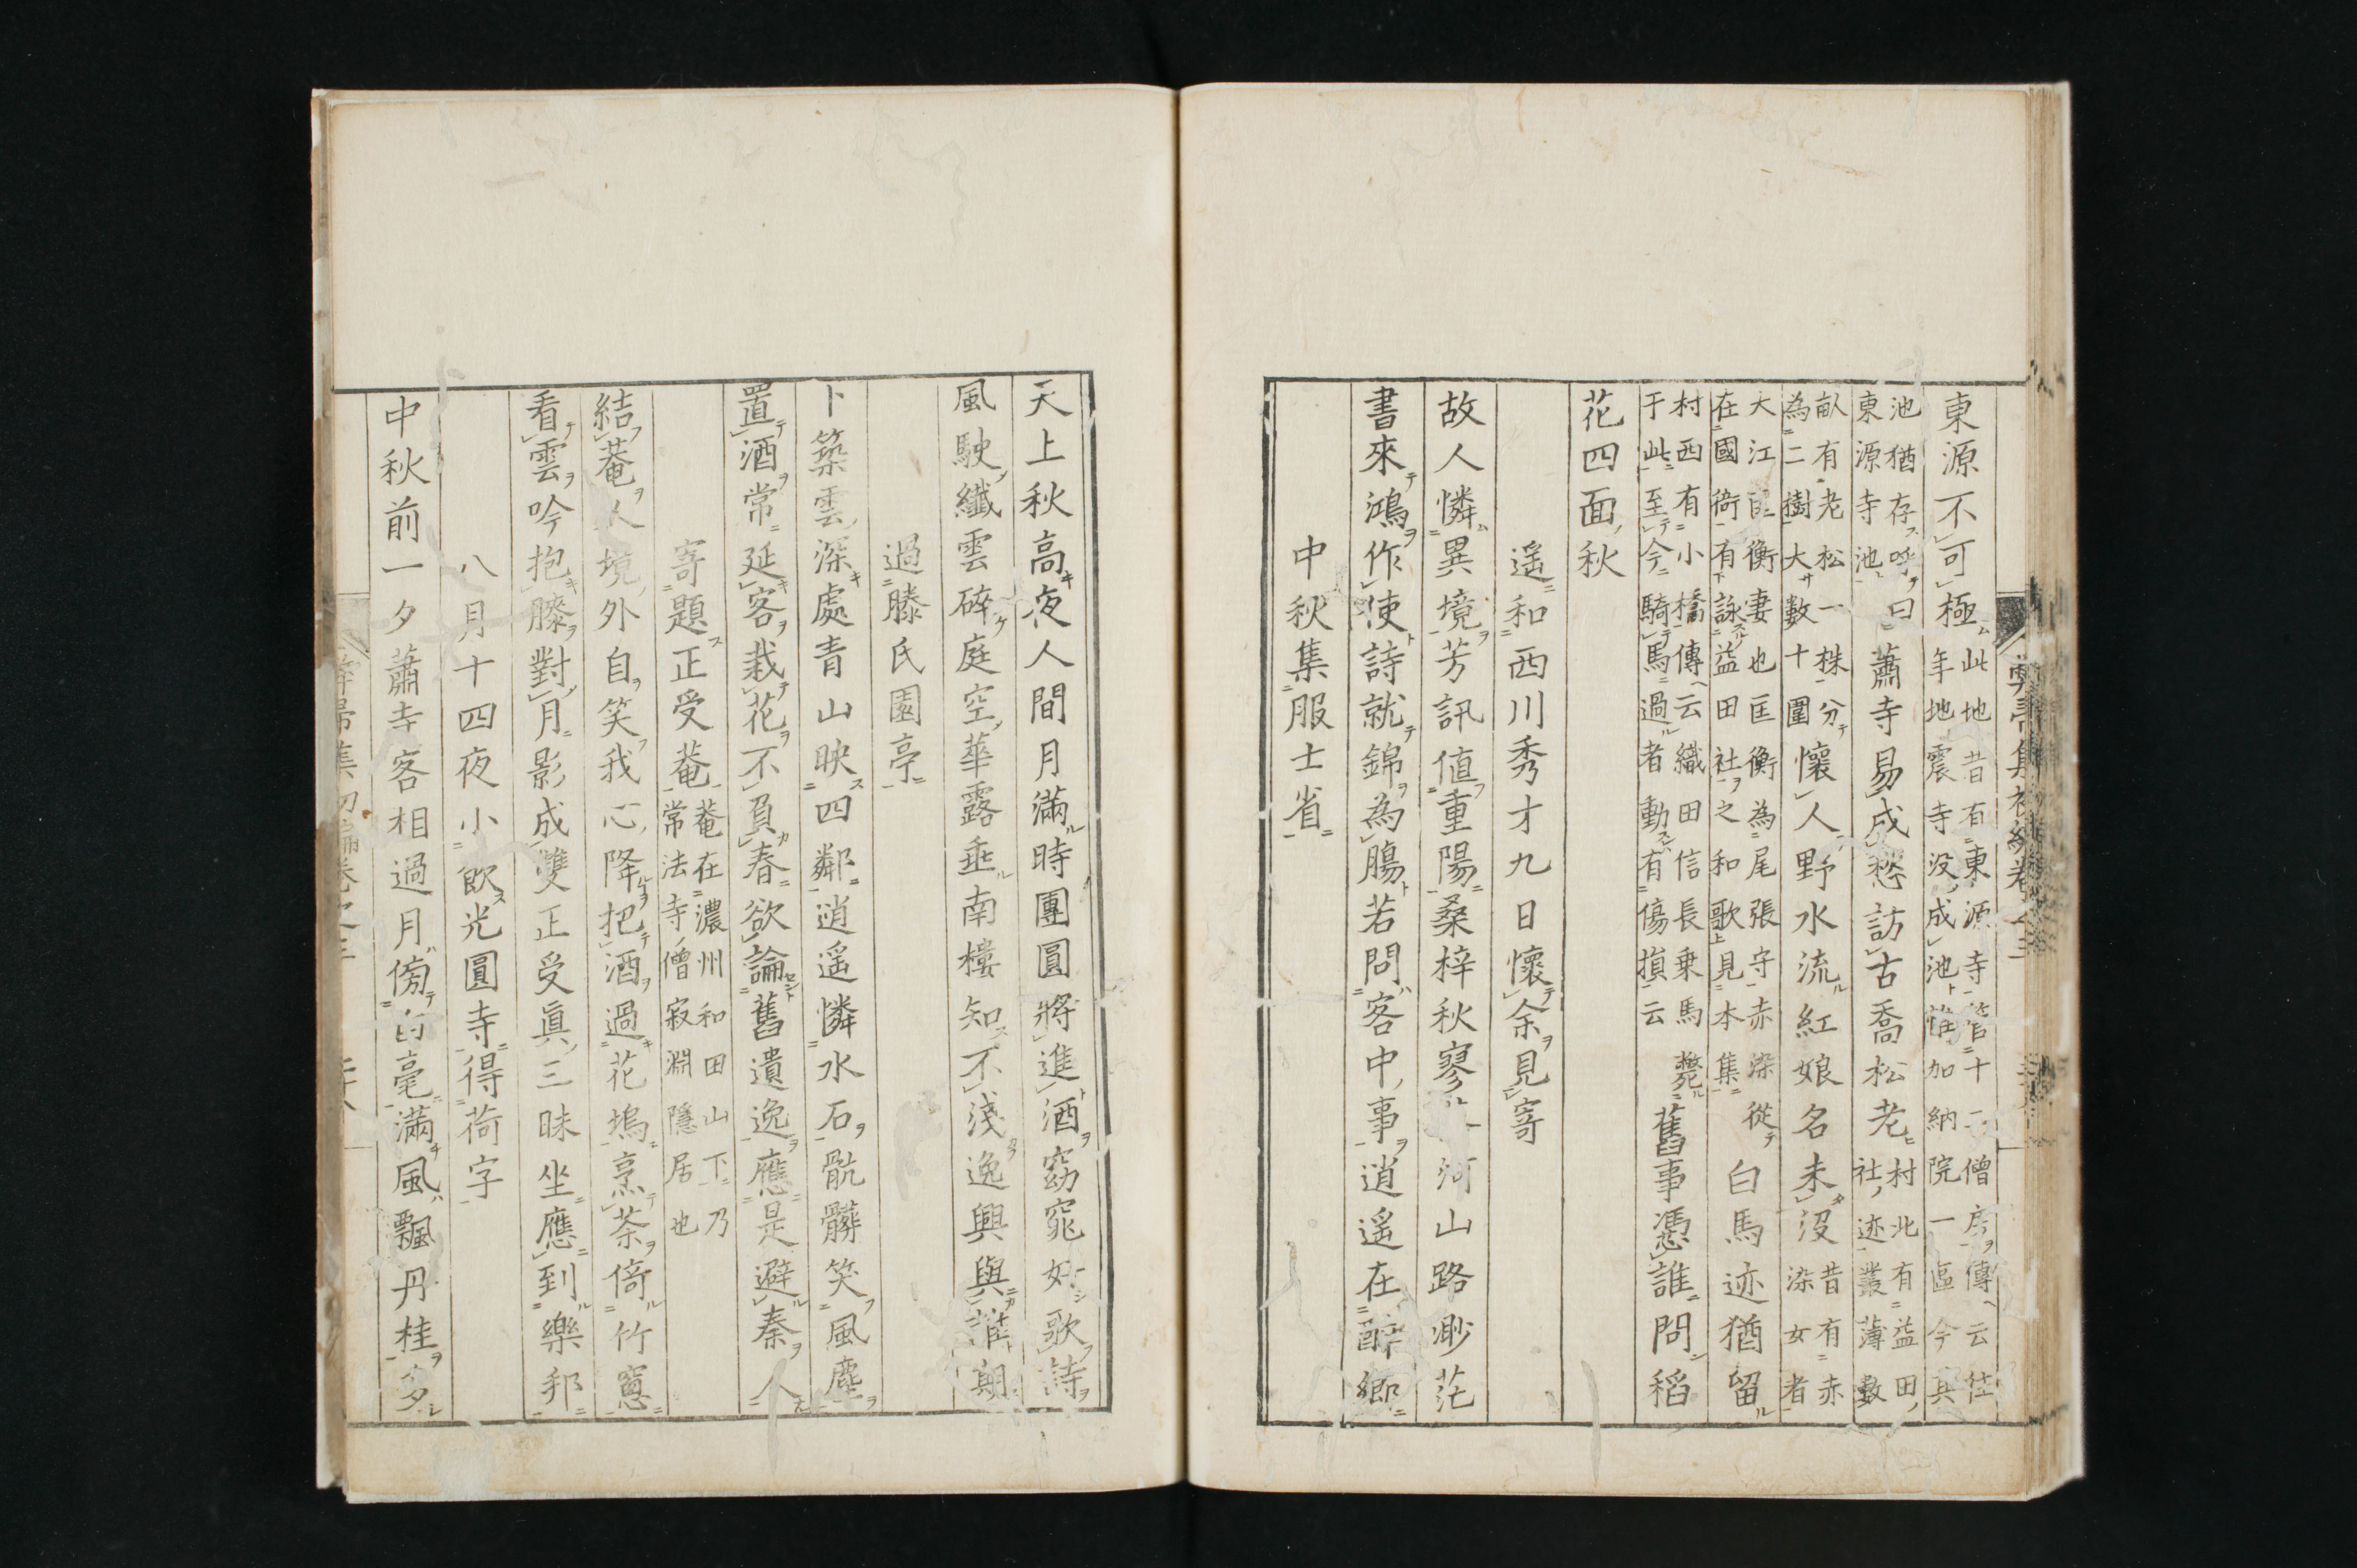 東源不可極
此地昔有東源寺管十二僧房傳云
年地震寺没成池惟加納院一區今其
池猶存呼曰
東源寺池
蕭寺易成愁訪古喬松老
村北有益田
社迹叢薄數
畝有老松一株分
為二樹大數十圍
懷人野水流紅娘名未没
昔有赤
染女者
大江匡衡妻也匡衡為尾張守赤染從
在國衙有詠益田社之和歌見本集
白馬迹猶留
村西有小橋傳云織田信長乗馬斃
于此至今騎馬過者動有傷損云
舊事憑誰問稻
花四面秋
遥和西川秀才九日懷余見寄
故人憐異境芳訊値重陽桑梓秋寥河山路渺茫
書來鴻作使詩就錦為腸若問客中事逍遥在醉郷
中秋集服士省
天上秋高夜人間月滿時團圓將進酒窈窕好歌詩
風駛纖雲碎庭空華露垂南樓知不淺逸興與誰期
過滕氏園亭
卜築雲深處青山映四鄰逍遥憐水石骯髒笑風塵
置酒常延客栽花不負春欲論舊遺逸應是避秦人
寄題正受菴
菴在濃州和田山下乃
常法寺僧寂淵隱居也
結菴人境外自笑我心降把酒過花塢烹茶倚竹窻
看雲吟抱膝對月影成雙正受真三昧坐應到樂邦
八月十四夜小飲光圓寺得荷字
中秋前一夕蕭寺客相過月傍白毫滿風飄丹桂多